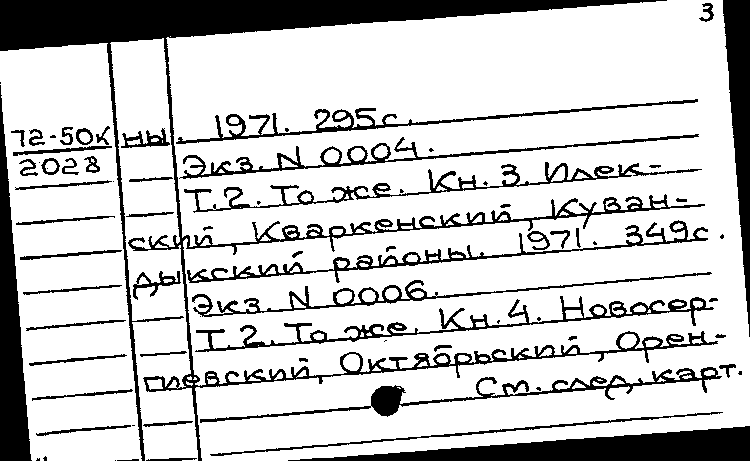 3
72-50к ны. 1971. 295с.
2028 Экз. N 0004.
Т.2. То же. Кн. 3. Илек-
ский, Кваркенский, Куван-
дыкский районы. 1971. 349с.
Экз. N 0006.
Т.2. То же. Кн. 4. Новосер-
гиевский, Октябрьский, Орен-
См. след. карт.